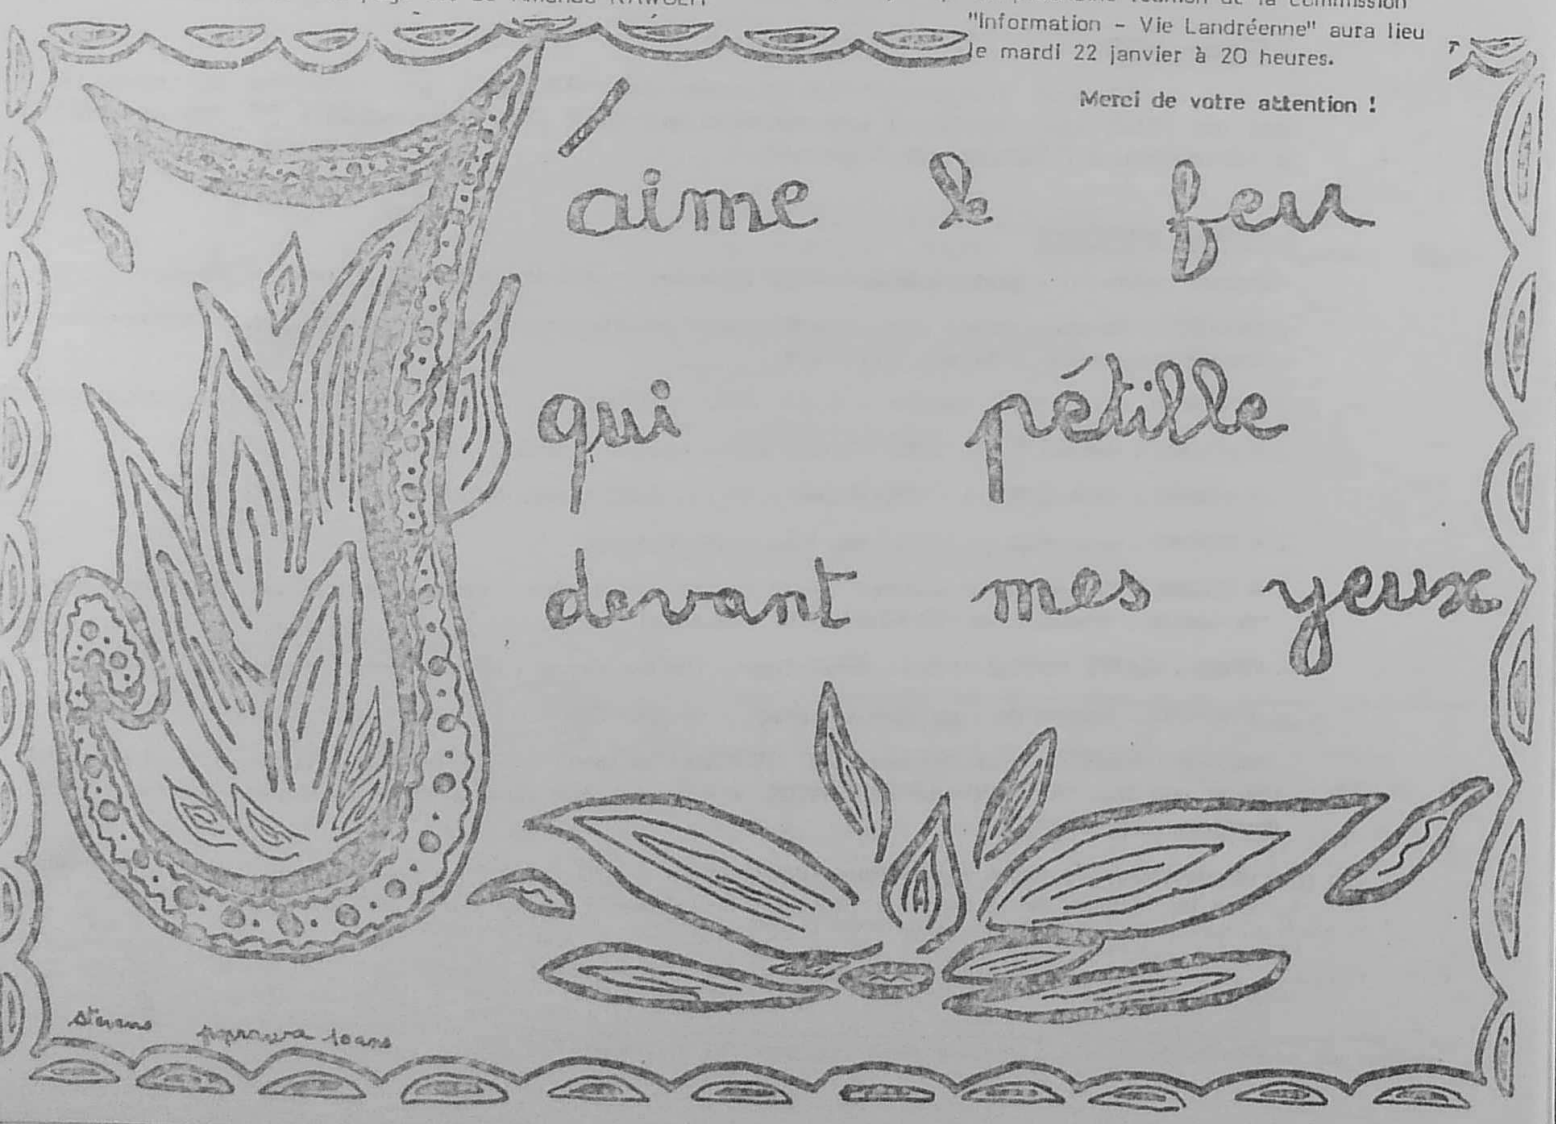 réunion de la commission
"Information - Vie Landréenne" aura lieu
le mardi 22 janvier à 20 heures.
Merci de votre attention !
J'aime le feu
qui pétille
devant mes yeux